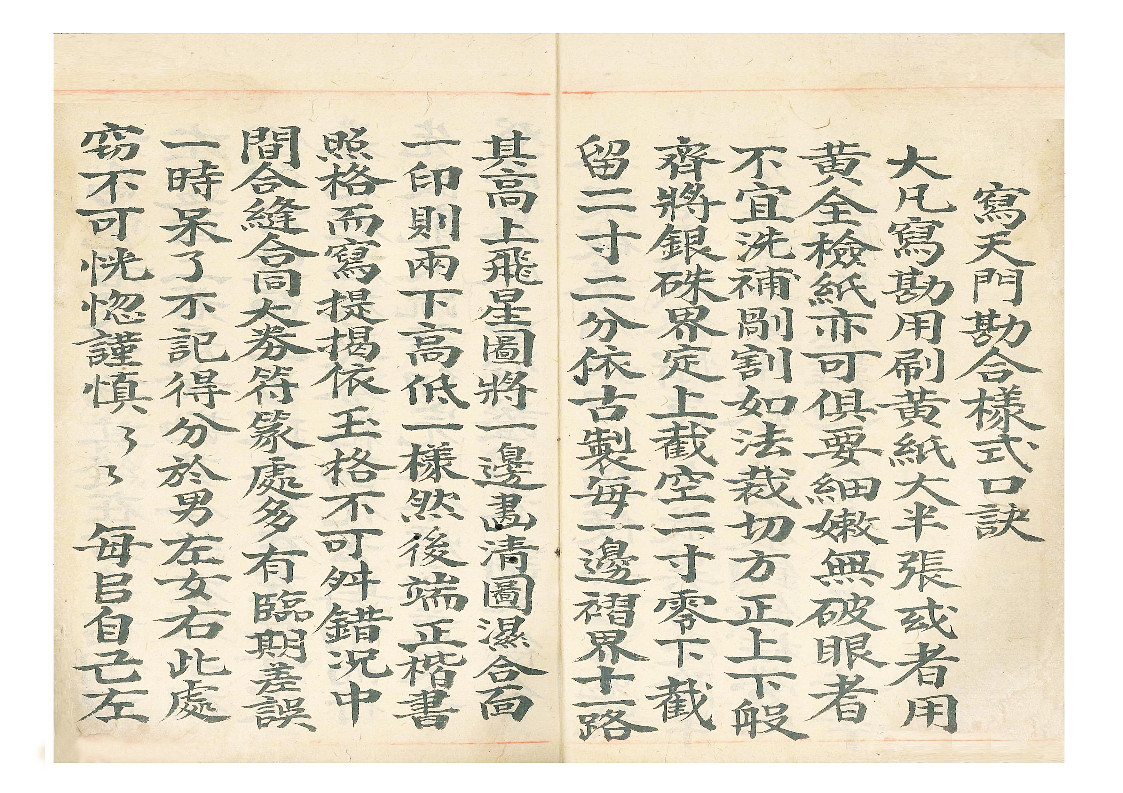 寫天門勘合樣式口訣
大凡寫勘用刷黃紙大半張或者用
黃全檢紙亦可俱要細嫩無破眼者
不宜洗補剮割如法裁切方正上下般
齊將銀硃界定上截空二寸零下截
留二寸二分依古製每一邊褶界十一路
其高上飛星圖將一邊畵清圖濕合面
一印則兩下高低一樣然後端正楷書
照格而寫提揭依玉格不可舛錯況中
間合縫合同大券符篆處多有臨期差誤
一時呆了不記得分於男左女右此處
窃不可恍惚謹慎〻〻 每㠯自己左